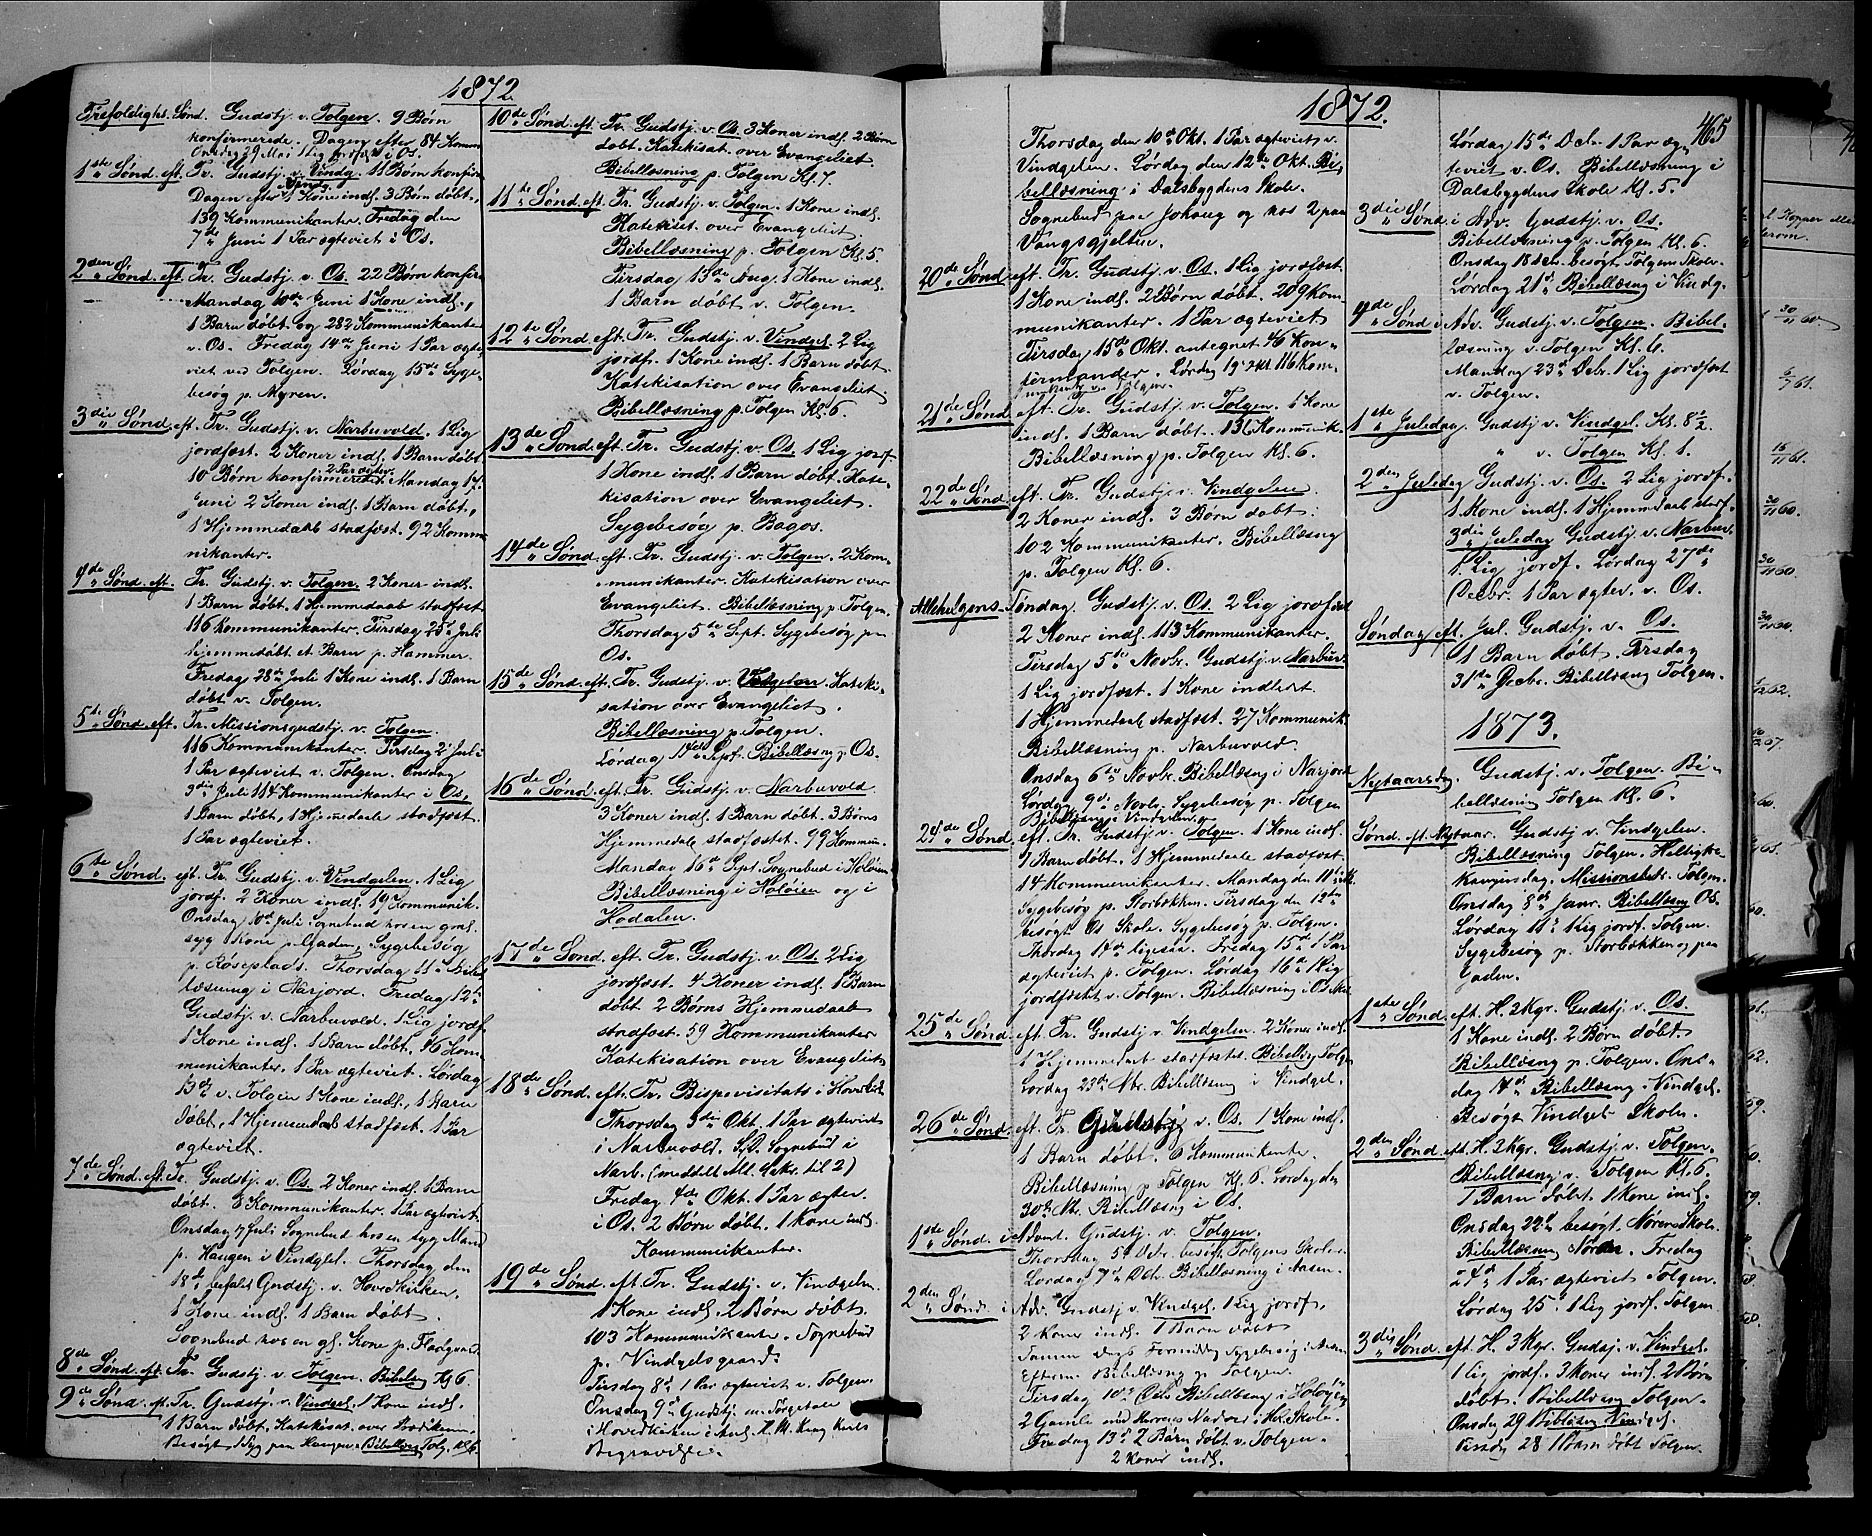 1872.
Trefoldigh. Sønd. Gudstj. v. Tolgen. 9 Børn
konfirmerede. Dagen efter 84 Komm
Onsdag 29 Mai 1 Lig jordfæst i Os.
1ste Sønd. eft. Tr. Gudstj. v. Vindg. 11 Børn konfir.
Dagen efter 1 Kone indl. 3 Børn døbt.
139 Kommunikanter. Fredag den
7de Juni 1 Par ægteviet i Os.
2den Sønd. eft. Tr. Gudstj. v. Os. 22 Børn konfir
Mandag 10de Juni 1 Kone indl.,
1 Barn døbt og 282 Kommunikanter
v. Os. Fredag 14de Juni 1 Par ægte-
viet ved Tolgen. Lørdag 15de Syge-
besøg p. Myren.
3die Sønd. eft. Tr. Gudstj. v. Narbuvold. 1 Lig
jordfæst. 2 Koner indl. 1 Barn døbt
10 Børn konfirmerede. Mandag 17
Juni 2 Koner indl. 1 Barn døbt,
1 Hjemmedaab stadfæst. 92 Kommu-
nikanter.
4de Sønd. eft. Tr. Gudstj. v. Tolgen. 2 Koner indl.
1 Barn døbt. 1 Hjemmedaab stadfæst
116 Kommunikanter. Tirsdag 25de Juli
hjemmedøbt et Barn p. Hammer.
Fredag 28de Juli 1 Kone indl. 1 Barn
døbt v. Tolgen.
5te Sønd. eft. Tr. Missionsgudstj. v. Tolgen.
116 Kommunikanter. Tirsdag 2 Juli
1 Par ægteviet v. Tolgen. Onsdag
3die Juli 114 Kommunikanter i Os.
1 Barn døbt, 1 Hjemmedaab stadfæst.
1 Par ægteviet.
6te Sønd. eft. Tr. Gudstj. v. Vindgelen. 1 Lig
jordf. 2 Koner indl. 19 Kommunik.
Onsdag 10de Juli Sognebud hos en gml.
syg Kone p. Gaden, Sygebesøg
p. Røseplads. Thorsdag 11te Bibel
læsning i Narjord. Fredag 12te
Gudstj. v. Narbuvold. 1 Lig jordf.
1 Kone indl. 1 Barn døbt, 46 Kom-
munikanter. 1 Par ægteviet. Lørdag
13de v. Tolgen 1 Kone indl., 1 Barn
døbt, 1 Hjemmedaab stadfæst. 1 Par
ægteviet.
7de Sønd. eft. Tr. Gudstj. v. Os. 2 Koner indl. 1 Barn
døbt. 8 Kommunikanter. 1 Par ægteviet.
Onsdag 17 Juli Sognebud hos en syg Mand
p. Haugen i Vindgel. Thorsdag den
18de befalet Gudstj. v. Hovedkirken,
1 Kone indl. 1 Barn døbt.
Sognebud hos en gl. Kone p.
8de Sønd. eft. Tr. Gudstj. v. Tolgen. Bibelæs Kl 6.
9de Sønd. eft. Tr. Gudstj. v. Vindgel. 1 Kone indl.
1 Barn døbt, Katekisat. over Prædiken
Besøgt 1 Syg paa Haugen. Bibellæs Tolg. Kl 6
10de Sønd. eft. Tr. Gudstj. v. Os. 3 Koner indl. 2 Børn
døbt. Katekisat. over Evangeliet
Bibellæsning p. Tolgen Kl. 7.
11te Sønd. eft. Tr. Gudstj. v. Tolgen. 1 Kone indl.
Katekiset. over Evangeliet.
Bibellæsning p. Tolgen Kl. 5.
Tirsdag 13de Aug. 1 Kone indl.
1 Barn døbt v. Tolgen.
12te Sønd. eft. Tr. Gudstj. v. Vindgel. 2 Lig
jordf. 1 Kone indl. 1 Barn døbt
Katekisation over Evangeliet
Bibellæsning p. Tolgen Kl. 6.
13de Sønd. eft. Tr. Gudstj. v. Os. 1 Lig jordf.
1 Kone indl. 1 Barn døbt. Kate-
kisation over Evangeliet.
Sygebesøg p. Bagos.
14de Sønd. eft. Tr. Gudstj. v. Tolgen. 2 Kom-
munikanter. Katekisation over
Evangeliet. Bibellæsning p. Tolgen.
Thorsdag 5te Sept. Sygebesøg paa
Os.
15de Sønd. eft. Tr. Gudstj. v. Tolgelen. Kateki-
sation over Evangeliet.
Bibellæsning p. Tolgen.
Lørdag 14de Sept. Bibellæsng p. Os.
16de Sønd. eft. Tr. Gudstj. v. Narbuvold
3 Koner indl. 1 Barn døbt. 3 Børns
Hjemmedab stadfæstet. 99 Kommun.
Mandag 16de Sept. Sognebud i Holøien
Bibellæsning i Holøien og i
Hodalen.
17de Sønd. eft. Tr. Gudstj. v. Os. 2 Lig
jordfæst. 4 Koner indl. 1 Barn
døbt. 2 Børns Hjemmedaab
stadfæst. 59 Kommunikanter
Katekisation over Evangeliet
18de Sønd. eft. Tr. Bispevisitats i Hovedkir
Thorsdag 3die Okt. 1 Par ægteviet
i Narbuvold. S.D. Sognebud i
Narb. (meddelt Alt. Sakr. til 2)
Fredag 4de Okt. 1 Par ægtev.
i Os. 2 Børn døbt. 1 Kone indl.
Kommunikanter.
19de Sønd. eft. Tr. Gudstj. v. Vindgelen
1 Kone indl. 2 Børn døbt.
103 Kommunikante. Sognebud
p. Vindgelsgaard.
Tirsdag 8de 1 Par ægteviet v. Tolgen.
Onsdag 9de Gudstj. m. Sørgetale
i Hovedkirken i Anl. H. M. Kong Karls
Begravelse.
1872.
465
Thorsdag den 10de Okt. 1 Par ægteviet v.
Vindgelen. Lørdag den 12te Okt. Bi-
bellæsning i Dalsbygdens Skole.
Sognebud paa Johaug og hos 2 paa
Vangsgjelten.
20de Sønd. eft. Tr. Gudstj. v. Os. 1 Lig jordfæst.
1 Kone indl. 2 Børn døbt. 209 Kom-
munikanter. 1 Par ægteviet
Tirsdag 15de Okt. antegnet 46 Kon-
firmander. Lørdag 19de Okt. 116 Kom-
munikanter v. Tolgen.
21de Sønd. eft. Tr. Gudstj. v. Tolgen. 1 Kone
indl. 1 Barn døbt. 136 Kommunik.
Bibellæsning p. Tolgen Kl. 6.
22de Sønd. eft. Tr. Gudstj. v. Vindgelen
2 Koner indl. 3 Børn døbt.
102 Kommunikanter. Bibellæsng
p. Tolgen Kl. 6.
Allehelgens-Søndag. Gudstj. v. Os. 2 Lig jordfæst
2 Koner indl. 113 Kommunikanter.
Tirsdag 5te Novbr. Gudstj. v. Narbuv.
1 Lig jordfæst. 1 Kone indledt
1 Hjemmedaab stadfæst. 27 Kommunik.
Bibellæsning p. Narbuvold.
Onsdag 6te Novbr. Bibellæsng i Narjord
Lørdag 9de Novbr. Sygebesøg p. Tolgen
Bibellæsng i Vindgelen.
24de Sønd. eft. Tr. Gudstj. v. Tolgen. 1 Kone indl.
1 Barn døbt. 1 Hjemmedaab stadfæst.
14 Kommunikanter. Mandag den 11te
Sygebesøg p. Storbækken. Tirsdag den 12te
besøgt Os Skole. Sygebesøg p. Tolgen.
Thorsdag 14de ligesaa. Fredag 15de 1 Par
ægteviet p. Tolgen. Lørdag 16de 1 Lig
jordfæstet v. Tolgen. Bibellæsning i Os Skol
25de Sønd. eft. Tr. Gudstj. v. Vindgelen. 2 Koner indl.
1 Hjemmedaab stadfæstet. Bibellæsng Tolgen
Lørdag 23de Nbr. Bibellæsng i Vindgel.
26de Sønd. eft. Tr. Gudstj. v. Os. 1 Kone indl.
1 Barn døbt. 6 Kommunikante.
Bibellæsning p. Tolgen Kl. 6. Lørdag den
30te Nbr. Bibellæsng i Os.
1ste Sønd. i Advent. Gudstj. v. Tolgen.
Thorsdag 5te Debr. besøgt Tolgens Skoler.
Lørdag 7de Debr. Bibellæsning i Aasen.
2den Sønd. i Adv. Gudstj. v. Vindgel. 1 Lig jordf.
2 Koner indl. 1 Barn døbt
Samme Dags Formiddag Sygebesøg i Aasen
Efterm Bibellæsng p. Tolgen.
Tirsdag 10de Debr. Bibellæsng i Holøyen
2 Gamle med Herrens Nadver i Hr. Skole.
Fredag 13de 2 Børn døbt v. Tolgen.
2 Koner indl.
Lørdag 15de Debr. 1 Par æg-
teviet v. Os. Bibellæsning i
Dalsbygdens Skole Kl. 5.
3die Sønd. i Adv. Gudstj. v. Os.
Bibellæsning v. Tolgen Kl. 6.
Onsdag 18de besøgt Tolgens Skoler
Lørdag 21de Bibellæsng i Vindg.
4de Sønd. i Adv. Gudstj. v. Tolgen. Bibel-
læsning v. Tolgen Kl. 6.
Mandag 23de Debr. 1 Lig jordfæst
v. Tolgen.
1ste Juledag Gudstj. v. Vindgel. Kl. 8½.
" v. Tolgen Kl. 1.
2den Juledag Gudstj. v. Os. 2 Lig jordf.
1 Kone indl. 1 Hjemmedaab stadf.
3die Juledag Gudstj. v. Narbuv.
1 Lig jordf. Lørdag 27de
Decbr. 1 Par ægtev. v. Os.
Søndag eft. Jul. Gudstj. v. Os.
1 Barn døbt. Tirsdag
31te Decbr. Bibellæsng Tolgen.
1873.
Nytaarsdag. Gudstj. v. Tolgen. Bi-
bellæsning Tolgen Kl. 6.
Sønd. eft. Nytaar. Gudstj. v. Vindgelen.
Bibellæsning Tolgen. Helligtre-
kongersdag. Missionsbet. Tolgen
Onsdag 8de Janr. Bibellæsng Os.
Lørdag 11te 1 Lig jordf. Tolgen.
Sygebesøg p. Storbækken og paa
Gaden.
1ste Sønd. eft. H. 3 Kgr. Gudstj. v. Os.
1 Kone indl. 2 Børn døbt
Bibellæsng p. Tolgen. Ons-
dag 14de Bibellæsng i Vindgel.
Besøgt Vindgel Skole.
2den Sønd. eft. H. 3 Kgr. Gudstj. v. Tolgen.
Bibellæsng v. Tolgen Kl. 6
1 Barn døbt 1 Kone indl.
Onsdag 22de besøgt Nørens Skole.
Bibellæsng Nøren. Fredag
24de 1 Par ægteviet Tolgen.
Lørdag 25de 1 Lig jordf. Tolgen
3die Sønd. eft. H. 3 Kgr. Gudstj. v. Vindgel.
1 Lig jordf. 3 Koner indl. 2 Børn
døbt. Bibellæsng Tolgen.
Onsdag 29 Bibelæsng Vindgel.
Tirsdg 28 1 Barn døbt Tolgen.